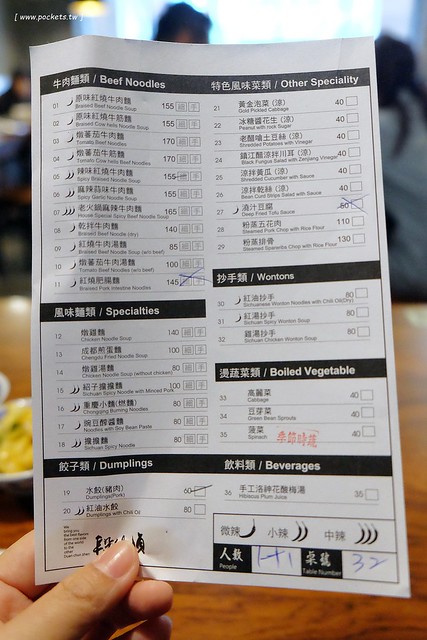 [ www.pockets.tw ]
牛肉麵類 / Beef Noodles
01 原味紅燒牛肉麵 155 細 手
Braised Beef Noodle Soup
02 原味紅燒牛筋麵 155 細 手
Braised Cow heils Noodle Soup
03 燉蕃茄牛肉麵 170 細 手
Tomato Beef Noodles
04 燉蕃茄牛筋麵 170 細 手
Tomato Cow heils Beef Noodles
05 辣味紅燒牛肉麵 155 細 手
Spicy Braised Noodle Soup
06 麻辣蒜味牛肉麵 155 細 手
Spicy Garlic Noodle Soup
07 老火鍋麻辣牛肉麵 165 細 手
House Special Spicy Beef Noodle Soup
08 乾拌牛肉麵 140 細 手
Braised Beef Noodle (dry)
09 紅燒牛肉湯麵 85 細 手
Braised Beef Noodle Soup (w/o beef)
10 燉蕃茄牛肉湯麵 100 細 手
Tomato Beef Noodles (w/o beef)
11 紅燒肥腸麵 145 細 手
Braised Pork Intestine Noodles
風味麵類 / Specialties
12 燉雞麵 140 細 手
Chicken Noodle Soup
13 成都煎蛋麵 100 細 手
Chengdu Fried Noodle Soup
14 燉雞湯麵 80 細 手
Chicken Noodle Soup (without chicken)
15 紹子擔擔麵 100 細 手
Sichuan Spicy Noodle with Minced Pork
16 重慶小麵(燃麵) 80 細 手
Chongqing Burning Noodles
17 豌豆醡醬麵 80 細 手
Noodles with Soy Bean Paste
18 擔擔麵 80 細 手
Sichuan Spicy Noodle
餃子類 / Dumplings
19 水餃(豬肉) 60
Dumplings(Pork)
20 紅油水餃 80
Dumplings with Chili Oil
特色風味菜類 / Other Speciality
21 黃金泡菜 (涼) 40
Gold Pickled Cabbage
22 冰糖醬花生 (涼) 40
Peanut with rock Sugar
23 老醋嗆土豆絲 (涼) 40
Shredded Potatoes with Vinegar
24 鎮江醋涼拌川耳 (涼) 40
Black Fungus Salad with Zenjiang Vinegar
25 涼拌黃瓜 (涼) 40
Shredded Cucumber with Sauce
26 涼拌乾絲 (涼) 40
Bean Curd Strips Salad with Sauce
27 澆汁豆腐 50
Deep Fried Tofu Sauce
28 粉蒸五花肉 110
Steamed Pork Chop with Rice Flour
29 粉蒸排骨 130
Steamed Spareribs Chop with Rice Flour
抄手類 / Wontons
30 紅油抄手 80
Sichuanese Wonton Noodles with Chili Oil(Dry)
31 紅湯抄手 80
Sichuan Spicy Wonton Soup
32 雞湯抄手 80
Sichuan Chicken Wonton Soup
燙蔬菜類 / Boiled Vegetable
33 高麗菜 40
Cabbage
34 豆芽菜 40
Green Bean Sprouts
35 菠菜 季節時蔬 40
Spinach
飲料類 / Beverages
36 手工洛神花酸梅湯 35
Hibiscus Plum Juice
微辣 小辣 中辣
人數 1+1 桌號 32
People Table Number